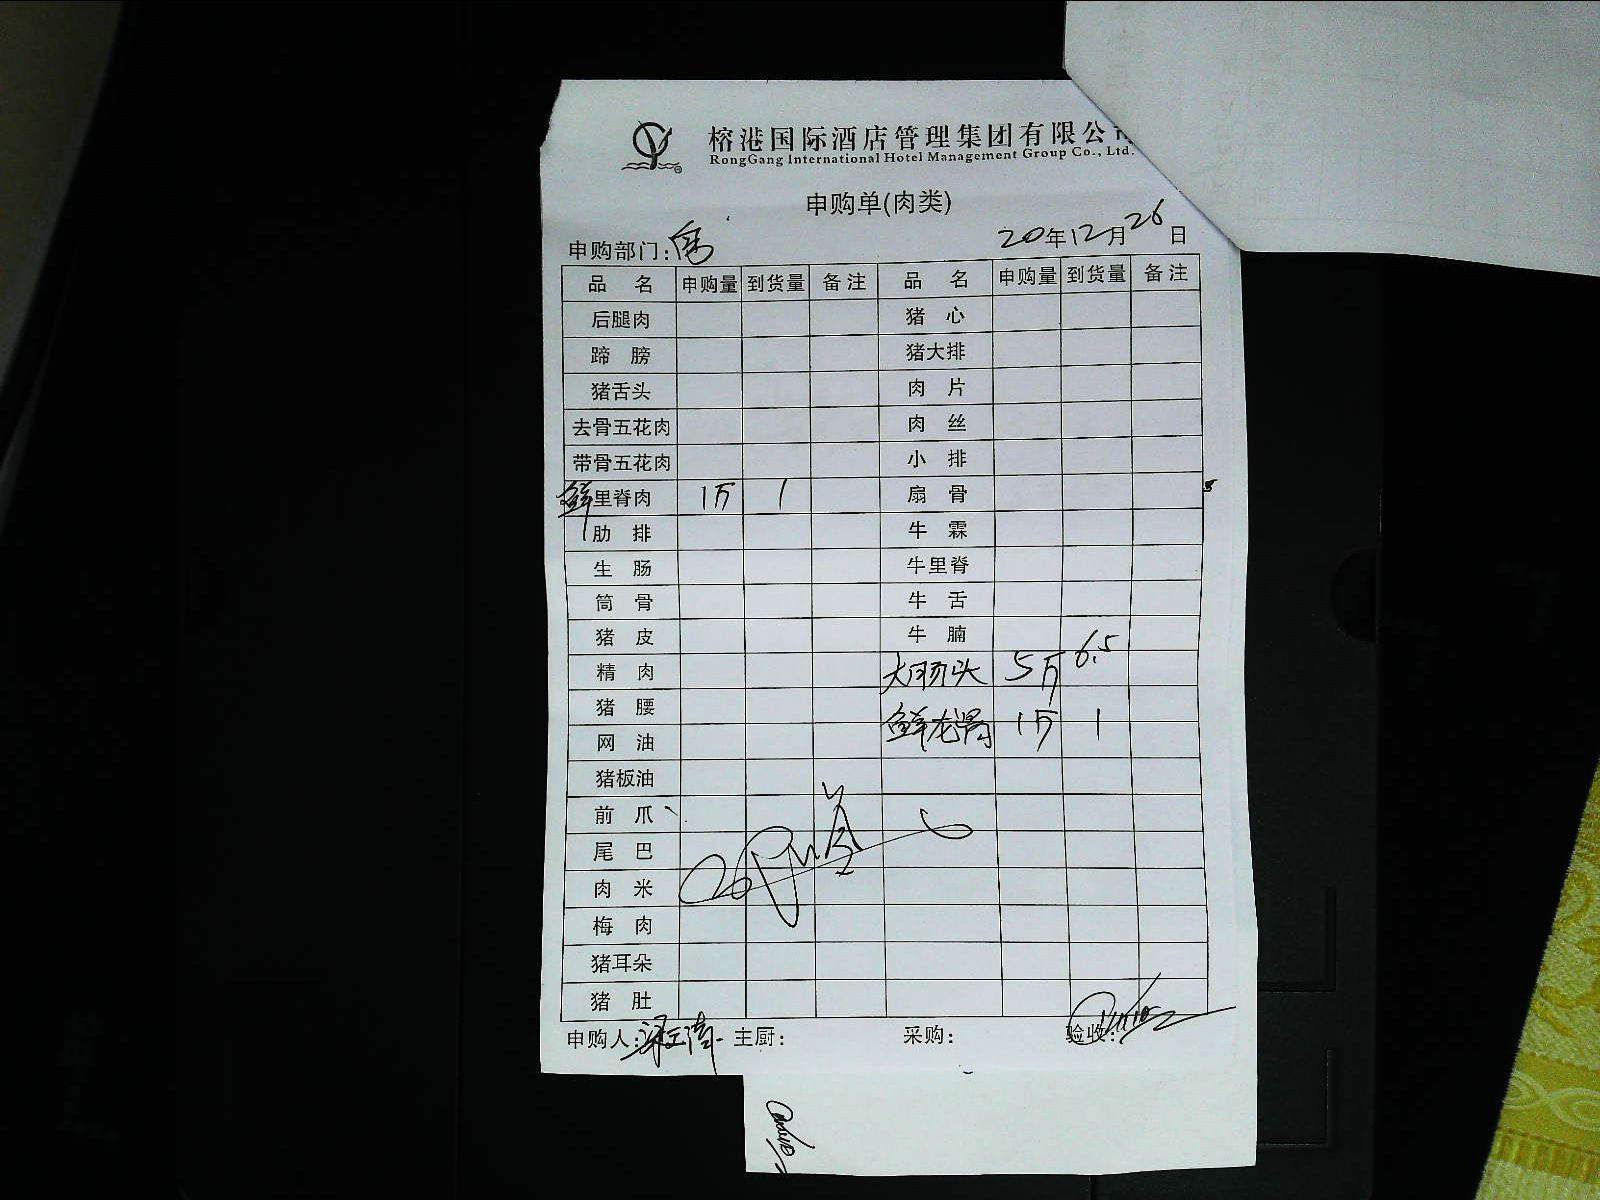 榕港国际酒店管理集团有限公
RongGang International Hotel Management Group Co., Ltd.
申购单(肉类)
申购部门:
20年12月26日
品 名 申购量 到货量 备注 品 名 申购量 到货量 备注
后腿肉 猪 心
蹄 膀 猪大排
猪舌头 肉 片
去骨五花肉 肉 丝
带骨五花肉 小 排
鲜里脊肉 1斤 1 扇 骨
肋 排 牛 霖
生 肠 牛里脊
筒 骨 牛 舌
猪 皮 牛 腩
精 肉 大肠头 5斤 6.5
猪 腰 鲜龙骨 1斤 1
网 油
猪板油
前 爪
尾 巴
肉 米
梅 肉
猪耳朵
猪 肚
申购人: 主厨: 采购: 验收: